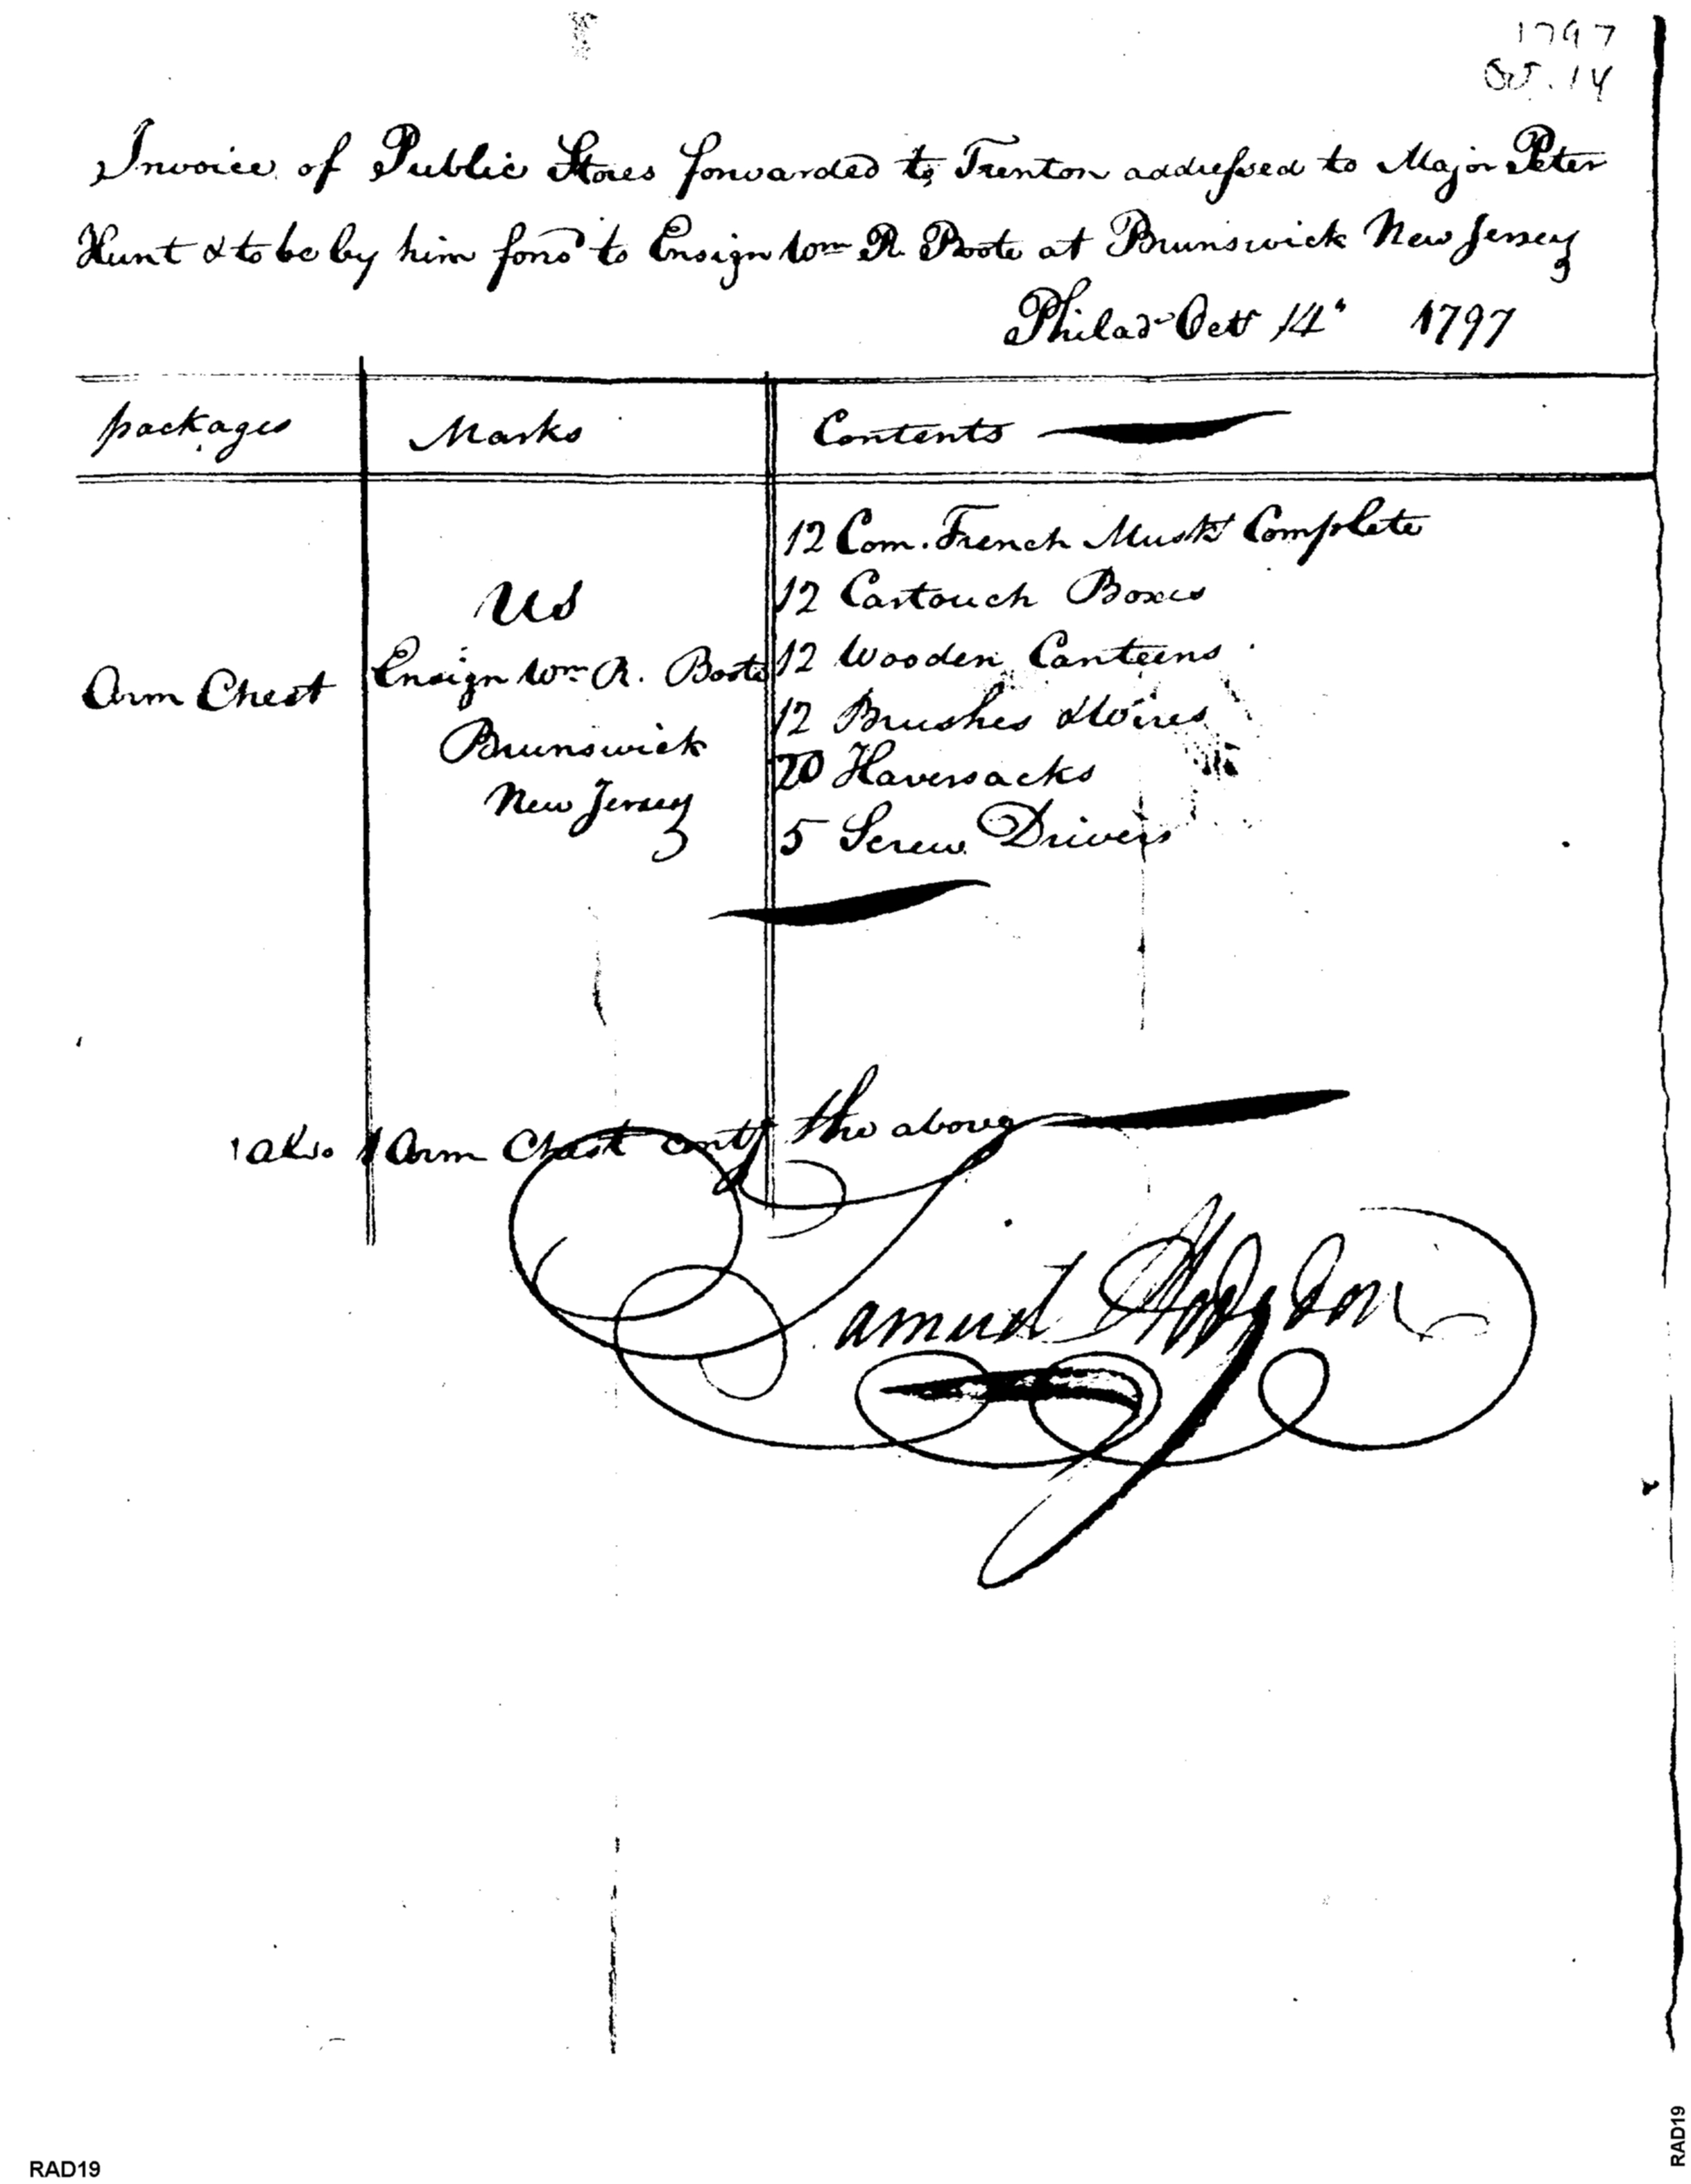 1797
Oct. 14
Invoice of Public Stores forwarded to Trenton addressed to Major Peter
Hunt & to be by him forwd to Ensign Wm R. Boote at Brunswick New Jersey
Philada Octr 14th 1797
packages Marks Contents
12 Com. French Muskts Complete
US
12 Cartouch Boxes
Ensign Wm R. Boote
12 Wooden Canteens
Arm Chest
12 Brushes & Wires
Brunswick
20 Haversacks
New Jersey
5 Screw Drivers
also 1 Arm Chest contg the above
Samuel Hodgdon
RAD19
RAD19